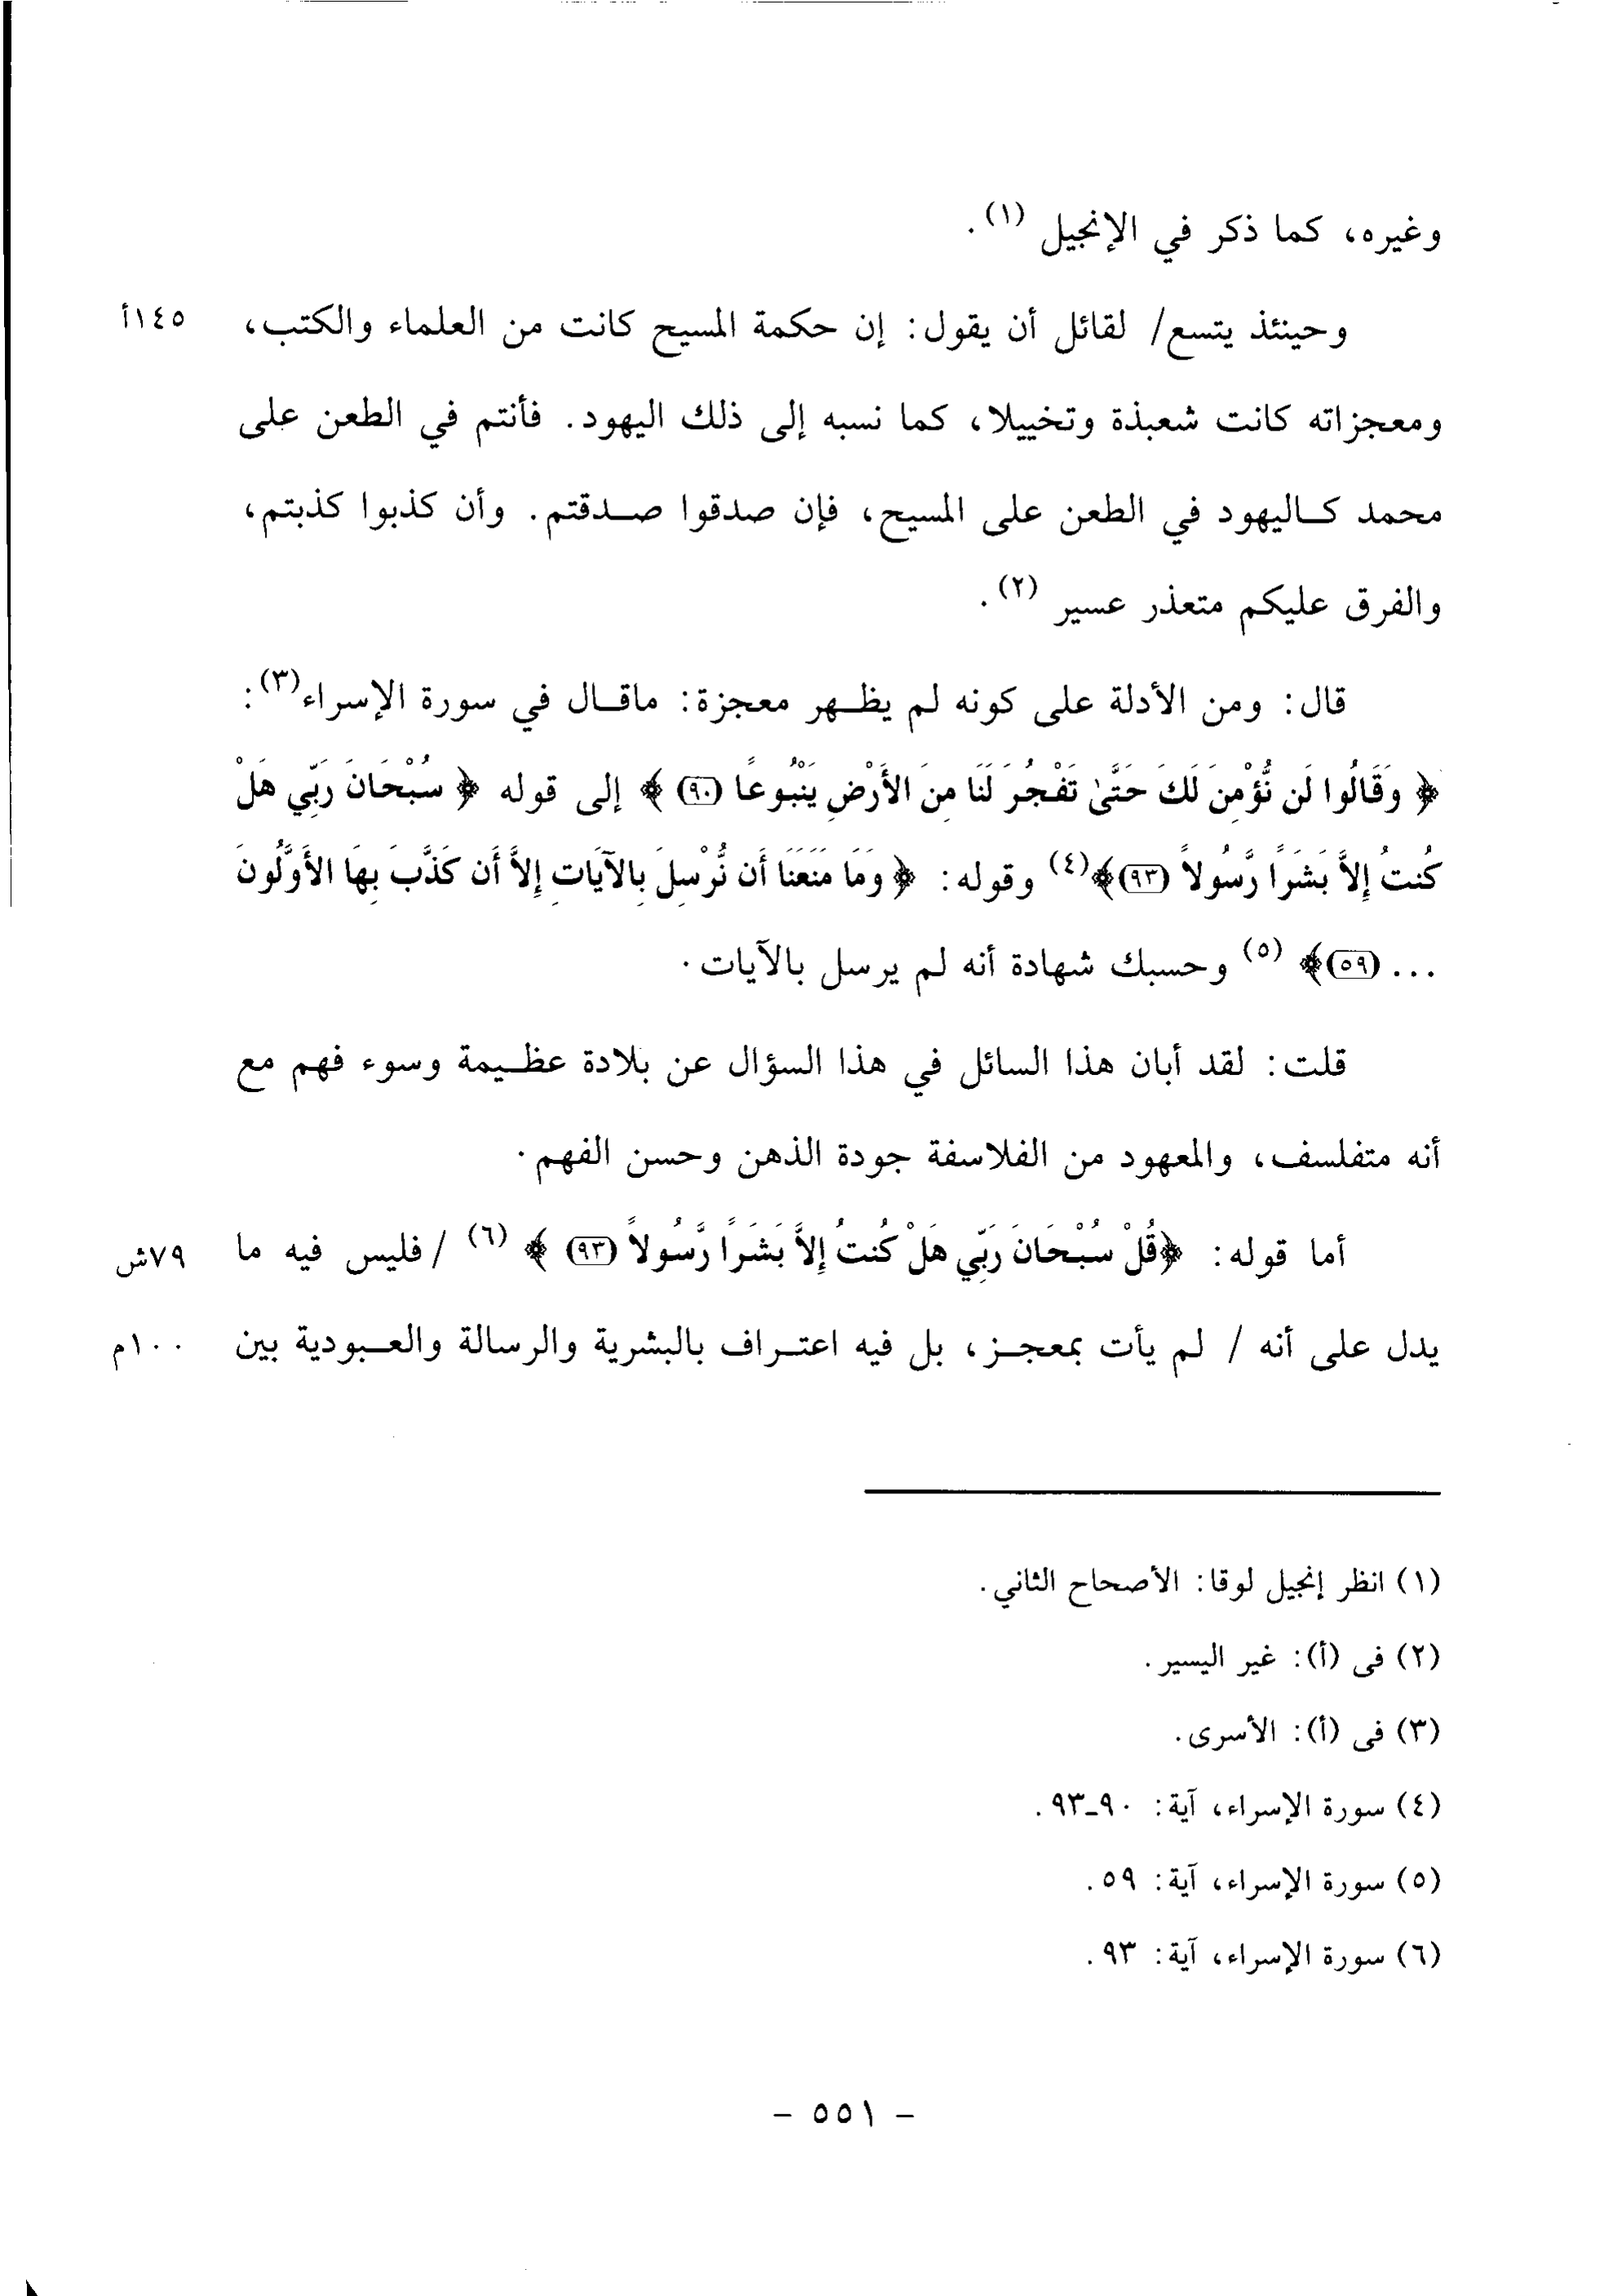 وغيره، كما ذكر في الإنجيل (١).
وحينئذ يتسع/ لقائل أن يقول: إن حكمة المسيح كانت من العلماء والكتب، ١٤٥أ
ومعجزاته كانت شعبذة وتخييلا، كما نسبه إلى ذلك اليهود. فأنتم في الطعن على
محمد كاليهود في الطعن على المسيح، فإن صدقوا صدقتم. وأن كذبوا كذبتم،
والفرق عليكم متعذر عسير (٢).
قال: ومن الأدلة على كونه لم يظهر معجزة: ماقال في سورة الإسراء(٣):
﴿ وَقَالُوا لَن نُّؤْمِنَ لَكَ حَتَّىٰ تَفْجُرَ لَنَا مِنَ الأَرْضِ يَنْبُوعًا (٩٠) ﴾ إلى قوله ﴿ سُبْحَانَ رَبِّي هَلْ
كُنتُ إِلاَّ بَشَرًا رَّسُولاً (٩٣)﴾(٤) وقوله: ﴿ وَمَا مَنَعَنَا أَن نُّرْسِلَ بِالآيَاتِ إِلاَّ أَن كَذَّبَ بِهَا الأَوَّلُونَ
... (٥٩)﴾ (٥) وحسبك شهادة أنه لم يرسل بالآيات.
قلت: لقد أبان هذا السائل في هذا السؤال عن بلادة عظيمة وسوء فهم مع
أنه متفلسف، والمعهود من الفلاسفة جودة الذهن وحسن الفهم.
أما قوله: ﴿قُلْ سُبْحَانَ رَبِّي هَلْ كُنتُ إِلاَّ بَشَرًا رَّسُولاً (٩٣) ﴾ (٦) /فليس فيه ما ٧٩ش
يدل على أنه / لم يأت بمعجز، بل فيه اعتراف بالبشرية والرسالة والعبودية بين ١٠٠م
(١) انظر إنجيل لوقا: الأصحاح الثاني.
(٢) فى (أ): غير اليسير.
(٣) فى (أ): الأسرى.
(٤) سورة الإسراء، آية: ٩٠-٩٣.
(٥) سورة الإسراء، آية: ٥٩.
(٦) سورة الإسراء، آية: ٩٣.
- ٥٥١ -